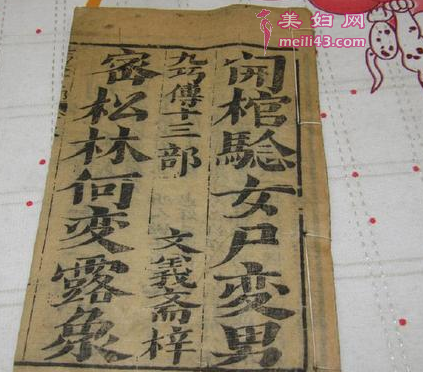 美妇网
meili43.com
開棺騐女尸変男
九巧傳十三部
文義斋梓
審松林何変露象